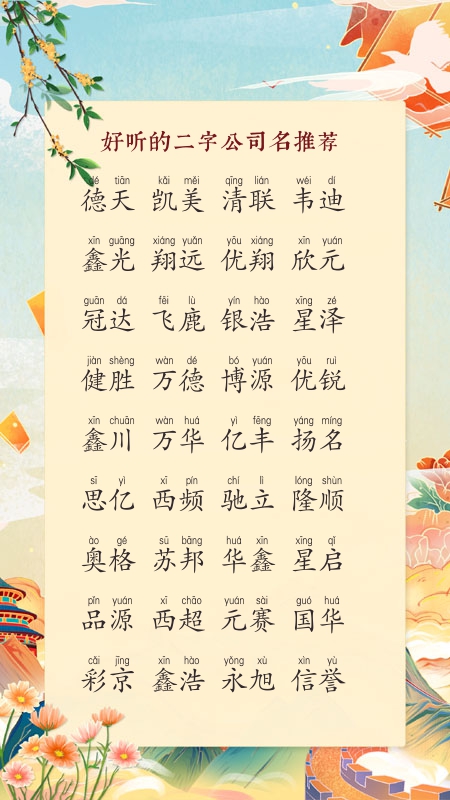 好听的二字公司名推荐
dé tiān kǎi měi qīng lián wéi dí
德天 凯美 清联 韦迪
xīn guāng xiáng yuǎn yōu xiáng xīn yuán
鑫光 翔远 优翔 欣元
guān dá fēi lù yín hào xīng zé
冠达 飞鹿 银浩 星泽
jiàn shèng wàn dé bó yuán yōu ruì
健胜 万德 博源 优锐
xīn chuān wàn huá yì fēng yáng míng
鑫川 万华 亿丰 扬名
sī yì xī pín chí lì lóng shùn
思亿 西频 驰立 隆顺
ào gé sū bāng huá xīn xīng qǐ
奥格 苏邦 华鑫 星启
pǐn yuán xī chāo yuán sài guó huá
品源 西超 元赛 国华
cǎi jīng xīn hào yǒng xù xìn yù
彩京 鑫浩 永旭 信誉